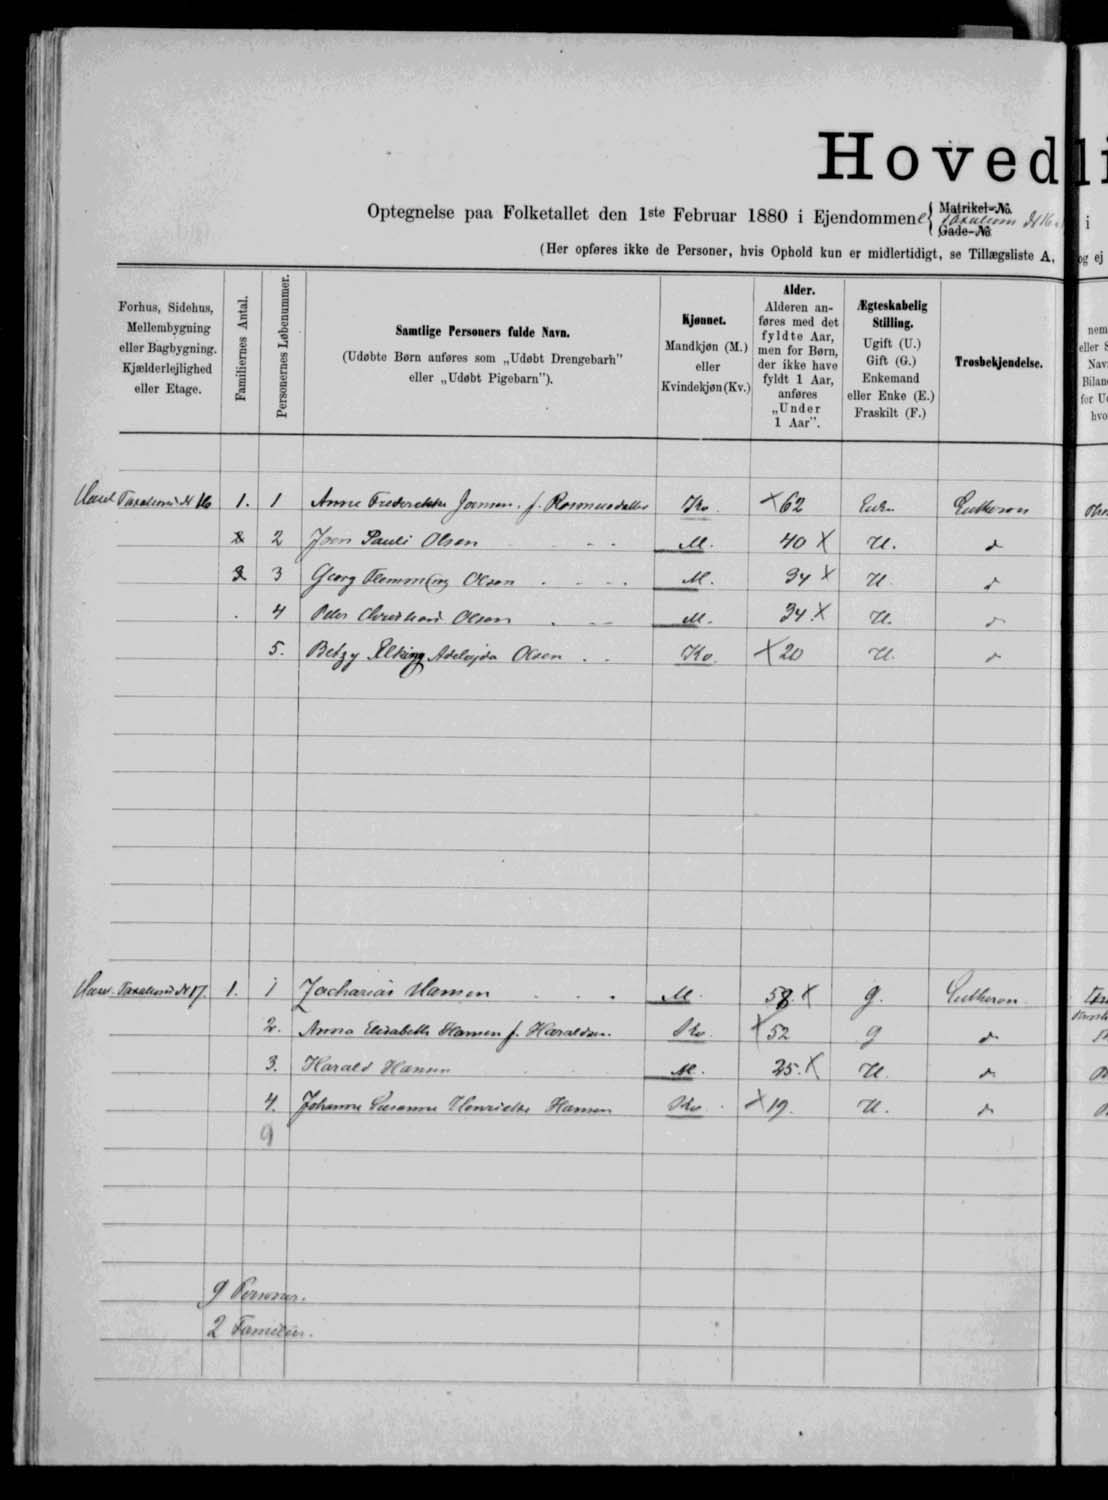 Hovedli
Optegnelse paa Folketallet den 1ste Februar 1880 i Ejendommene { Matrikel-No. Taxations No 16 i
Gade-No
(Her opføres ikke de Personer, hvis Ophold kun er midlertidigt, se Tillægsliste A, og ej
Forhus, Sidehus, Mellembygning eller Bagbygning. Kjælderlejlighed eller Etage.
Familiernes Antal.
Personernes Løbenummer.
Samtlige Personers fulde Navn.
(Udøbte Børn anføres som „Udøbt Drengebarh” eller „Udøbt Pigebarn”).
Kjønnet.
Mandkjøn (M.) eller Kvindekjøn (Kv.)
Alder.
Alderen anføres med det fyldte Aar, men for Børn, der ikke have fyldt 1 Aar, anføres „Under 1 Aar”.
Ægteskabelig Stilling.
Ugift (U.) Gift (G.) Enkemand eller Enke (E.) Fraskilt (F.)
Trosbekjendelse.
Taxations No 16 1. 1 Anne Frederikke Joensen, f. Kv. 62 Enke Lutheran
2 Joen Pauli Olsen M. 40 U. d
3 Georg Flemming Olsen M. 34 U. d
4 Peter Olsen M. 34 U. d
5. Betzy Adelejda Olsen Kv. 20 U. d
Taxations No 17. 1. 1 Zacharias Hansen M. 58 g. Lutheran
2. Anna Elisabeth Hansen f. Haraldsen Kv. 52 g d
3. Harald Hansen M. 25. U. d
4. Johanne Susanne Henriette Hansen Kv. 19. U. d
9
9 Personer.
2 Familier.